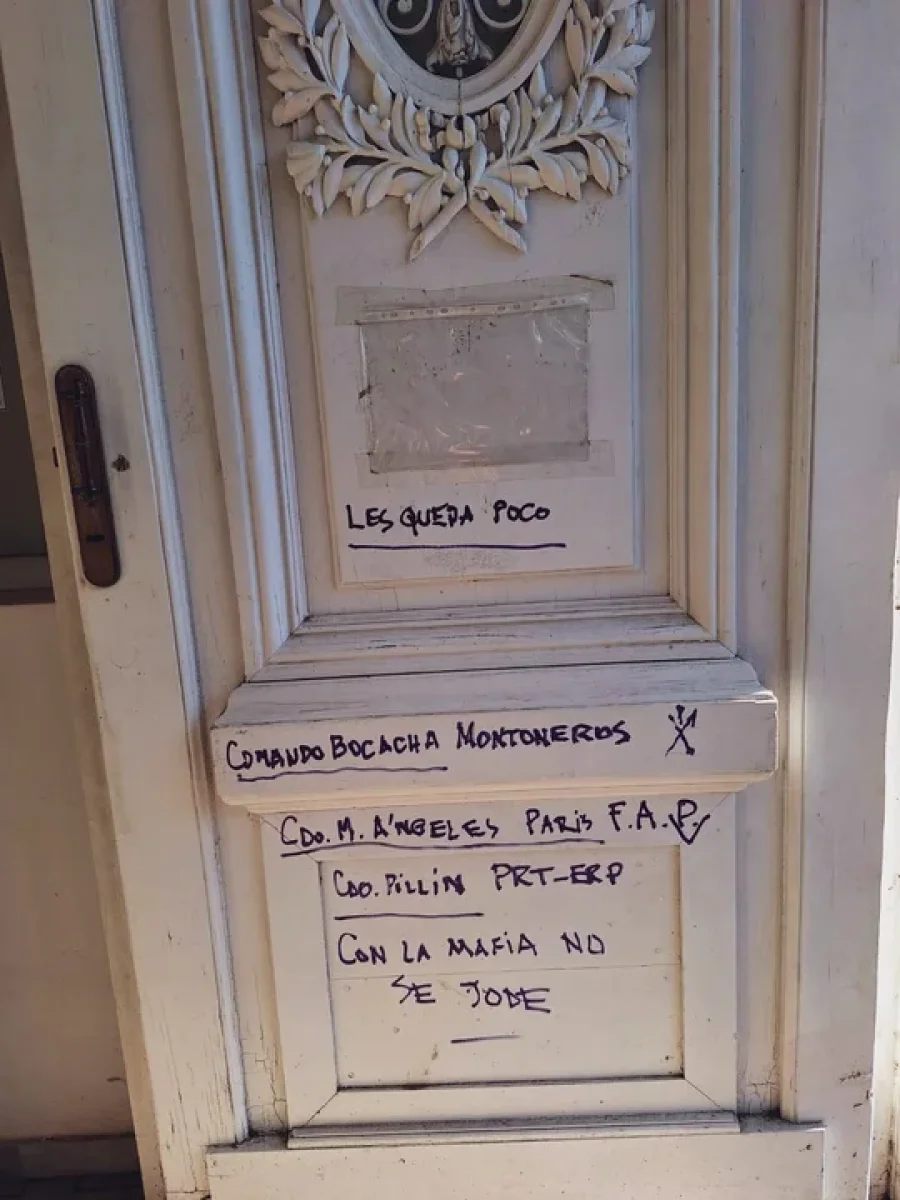 LES QUEDA POCO
COMANDO BOCACHA MONTONEROS
CDO. M. ÁNGELES PARIS F.A.P.
CDO. PILLIN PRT-ERP
CON LA MAFIA NO
SE JODE